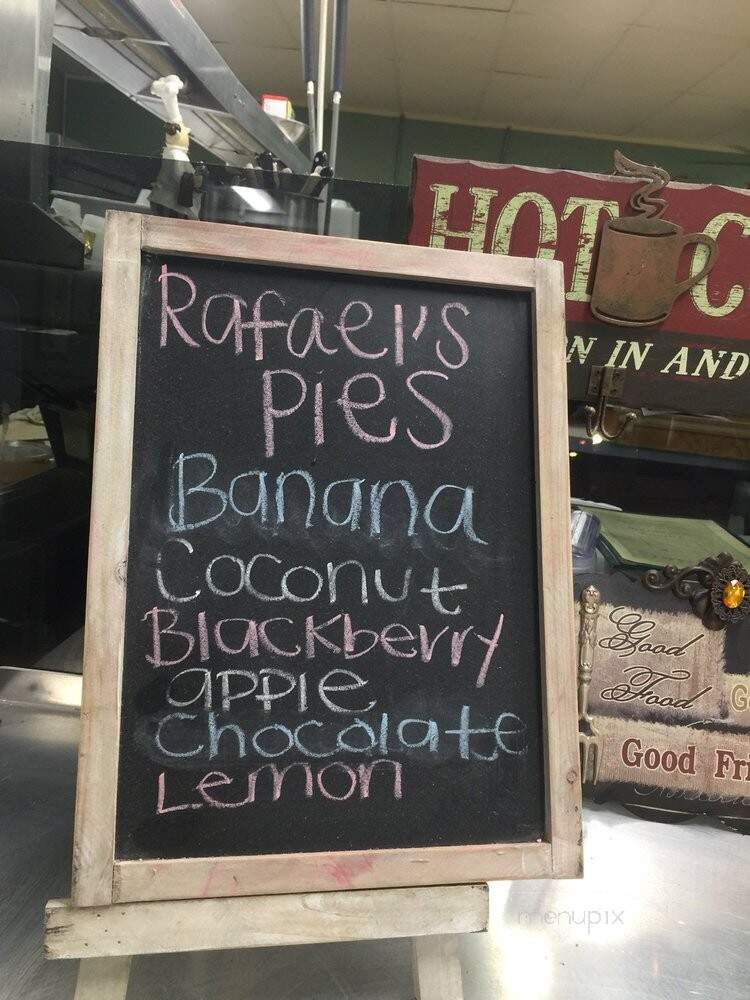 Rafael's
Pies
Banana
Coconut
Blackberry
apple
Chocolate
Lemon
HOT C
N IN AND
Good
Food
G
Good Fri
menupix